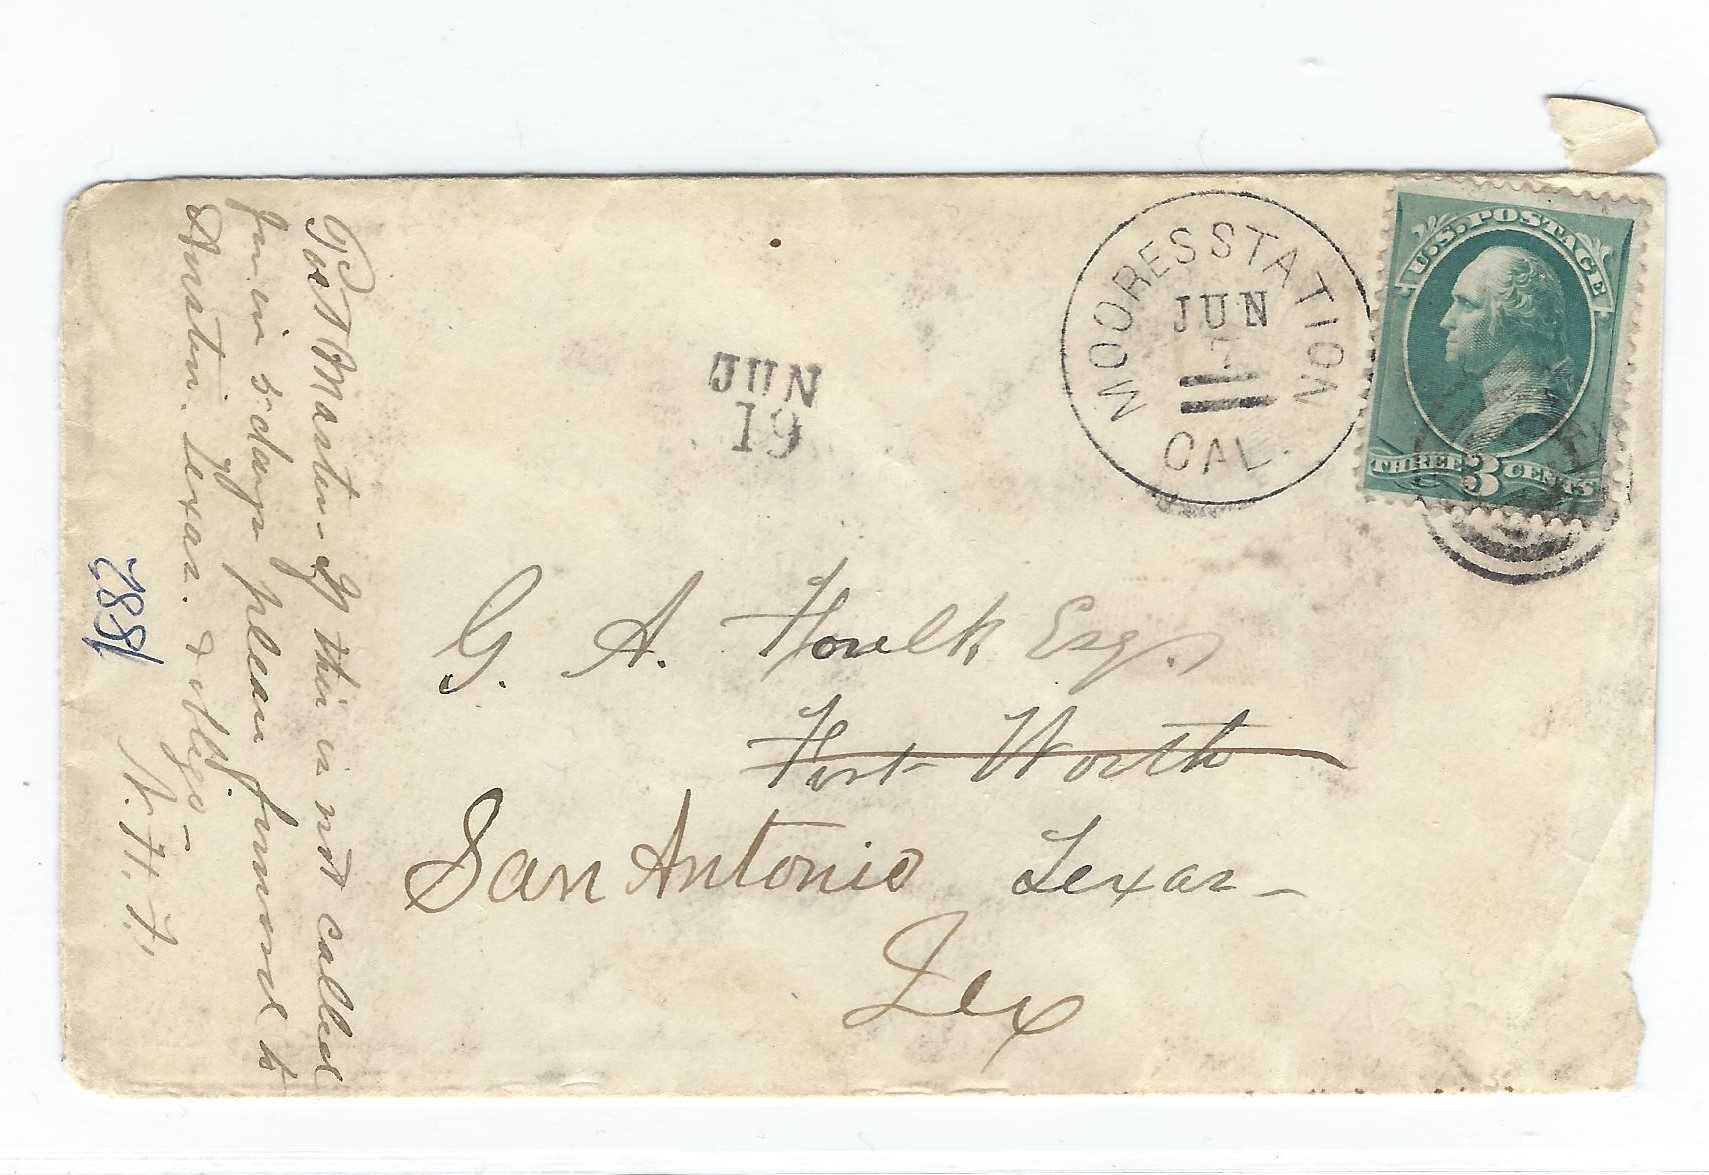 Post Master If this is not called
for in 5 days please forward to
Austin. Texas. & oblige
1882
JUN
19
MOORES STATION
JUN
7
CAL.
U.S. POSTAGE
THREE 3 CENTS
G. A. Foulk Esq.
Fort Worth
San Antonio Texas
Tex